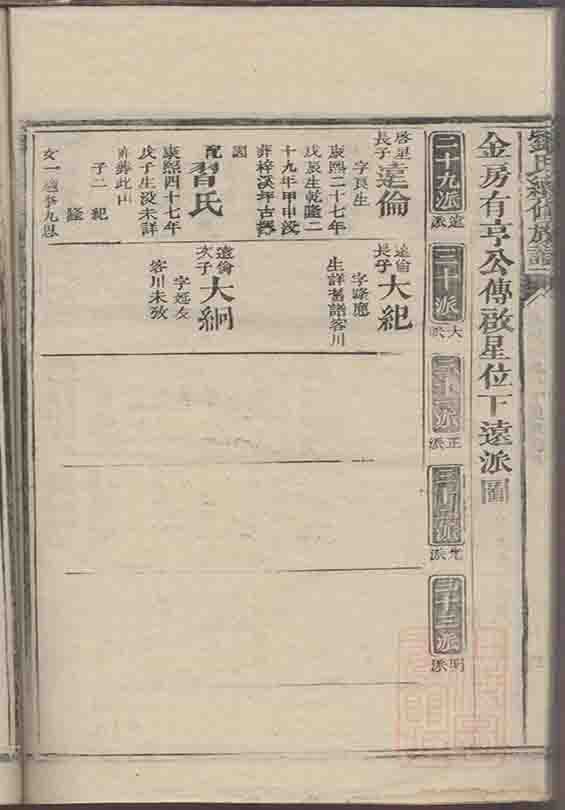 金房有亨公傳啟星位下遠派圖
二十九派
遠派
三十派
大派
三十一派
正派
三十二派
光派
三十三派
明派
啓星
長子
遠倫
字良生
康熙二十七年
戊辰生乾隆二
十九年甲申沒
葬梓溪坪古
園
配習氏
康熙四十七年
戊子生沒未詳
葬此山
子二
紀
女一適李九恩
遠倫
長子
大紀
字
生詳舊譜客川
遠倫
次子
大綱
字廷友
客川未攷